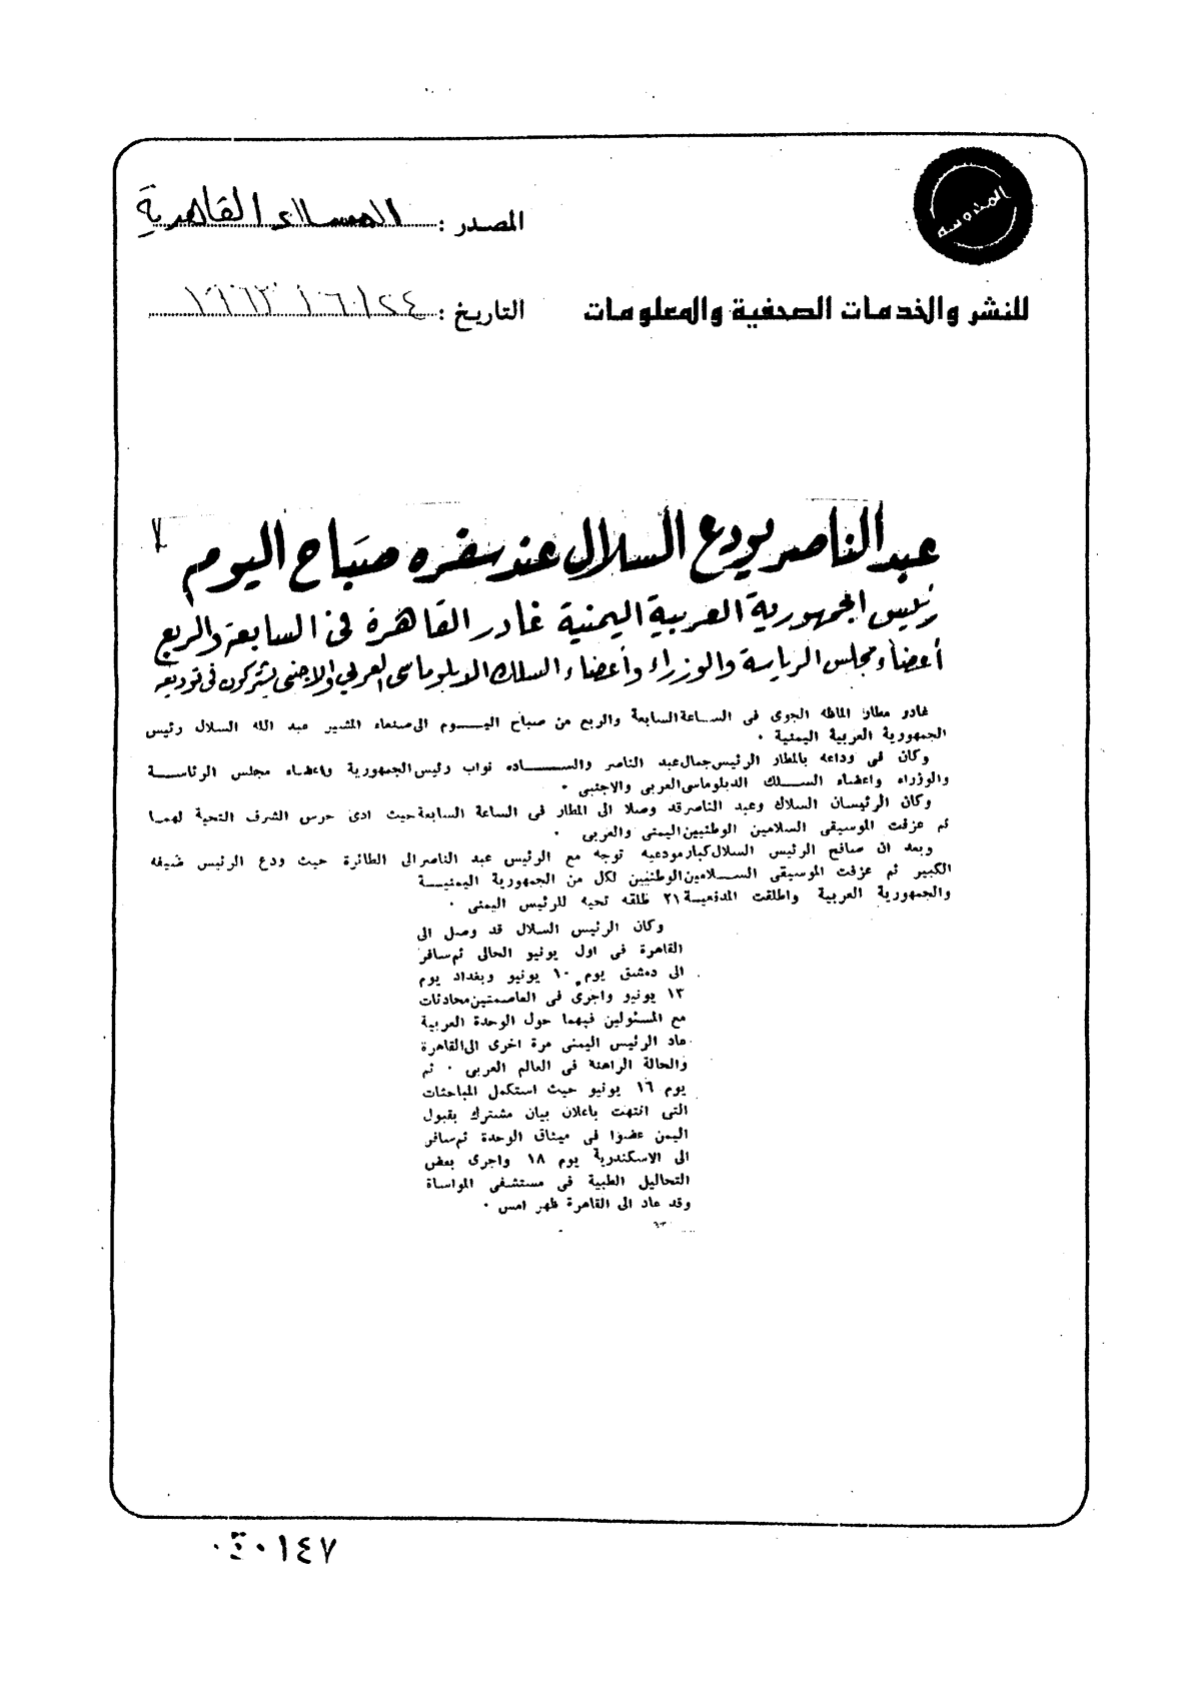 المحروسه
المصدر : المساء القاهرية
للنشر والخدمات الصحفية والمعلومات
التاريخ : ١٩٦٣/٦/٢٤
عبد الناصر يودع السلال عند سفره صباح اليوم
رئيس الجمهورية العربية اليمنية غادر القاهرة فى السابعة والربع
أعضاء مجلس الرياسة والوزراء وأعضاء السلك الدبلوماسى العربي والاجنبى يشتركون فى توديعه
غادر مطار الماظه الجوى فى الساعة السابعة والربع من صباح اليوم الى صنعاء المشير عبد الله السلال رئيس
الجمهورية العربية اليمنية .
وكان فى وداعه بالمطار الرئيس جمال عبد الناصر والساده نواب رئيس الجمهورية واعضاء مجلس الرئاسة
والوزراء واعضاء السلك الدبلوماسى العربى والاجنبى .
وكان الرئيسان السلاك وعبد الناصر قد وصلا الى المطار فى الساعة السابعة حيث ادى حرس الشرف التحية لهما
ثم عزفت الموسيقى السلامين الوطنيين اليمنى والعربى .
وبعد ان صافح الرئيس السلال كبار مودعيه توجه مع الرئيس عبد الناصر الى الطائرة حيث ودع الرئيس ضيفه
الكبير ثم عزفت الموسيقى السلامين الوطنيين لكل من الجمهورية اليمنية
والجمهورية العربية واطلقت المدفعية ٢١ طلقه تحيه للرئيس اليمنى .
وكان الرئيس السلال قد وصل الى
القاهرة فى اول يونيو الحالى ثم سافر
الى دمشق يوم ١٠ يونيو وبغداد يوم
١٣ يونيو واجرى فى العاصمتين محادثات
مع المسئولين فيهما حول الوحدة العربية
عاد الرئيس اليمنى مرة اخرى الى القاهرة
والحالة الراهنة فى العالم العربى . ثم
يوم ١٦ يونيو حيث استكمل المباحثات
التى انتهت باعلان بيان مشترك بقبول
اليمن عضوا فى ميثاق الوحدة ثم سافر
الى الاسكندرية يوم ١٨ واجرى بعض
التحاليل الطبية فى مستشفى المواساة
وقد عاد الى القاهرة ظهر امس .